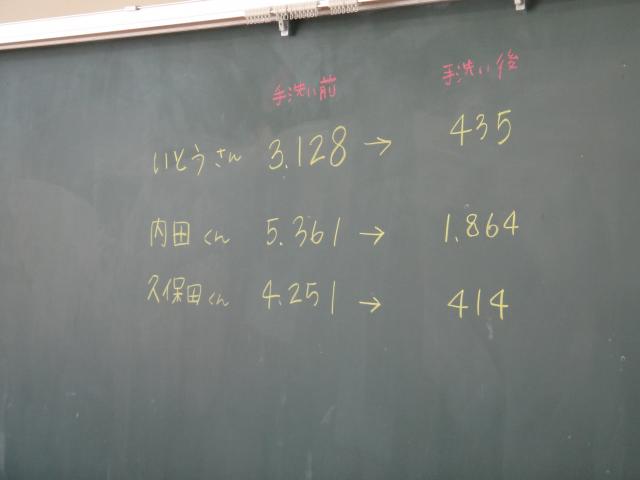 手洗い前 手洗い後
いとうさん 3.128 → 435
内田くん 5.361 → 1.864
久保田くん 4.251 → 414